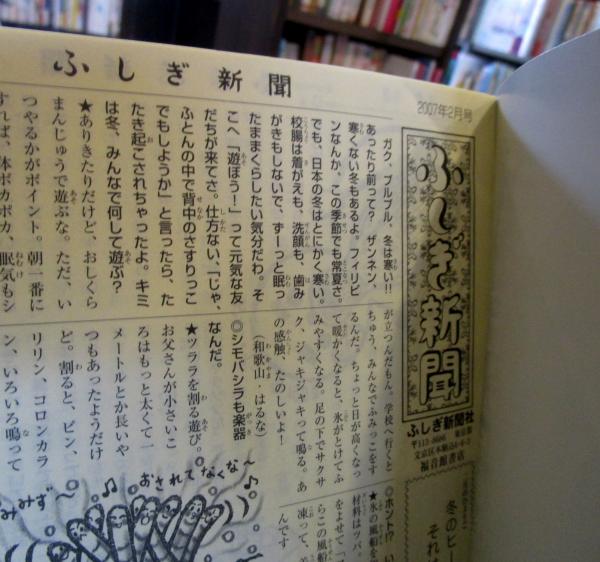 ふしぎ新聞
2007年2月号
ふしぎ新聞
ふしぎ新聞社
〒113-8686 東京都
文京区本駒込6-6-3
福音館書店
ガク、ブルブル、冬は寒い!!
あったり前って? ザンネン、
寒くない冬もあるよ。フィリピ
ンなんか、この季節でも常夏さ。
でも、日本の冬はとにかく寒い。
校長は着がえも、洗顔も、歯み
がきもしないで、ずーっと眠っ
たままくらしたい気分だわ。そ
こへ「遊ぼう!」って元気な友
だちが来てさ。仕方ない、「じゃ、
ふとんの中で背中のさすりっこ
でもしようか」と言ったら、た
たき起こされちゃったよ。キミ
は冬、みんなで何して遊ぶ?
★ありきたりだけど、おしくら
まんじゅうで遊ぶな。ただ、い
つやるかがポイント。朝一番に
すれば、体ポカポカ、眠気もシ
が立つんだもん。学校へ行くと
ちゅう、みんなでふみっこをす
るんだ。ちょっと日が高くなっ
て暖かくなると、氷がとけてふ
みやすくなる。足の下でサクサ
ク、ジャキジャキって鳴る。あ
の感触、たのしいよ!
(和歌山・はるな)
◎シモバシラも楽器
なんだ。
★ツララを割る遊び。
お父さんが小さいこ
ろはもっと太くて一
メートルとか長いや
つもあったようだけ
ど。割ると、ピン、
リリン、コロンカラ
ン、いろいろ鳴って
◎ホント!?
★氷の風船を
材料はツバ。
をよせて「
らこの風船
凍って、
んです
冬のピー
それ
おされてなくな〜
みみず〜